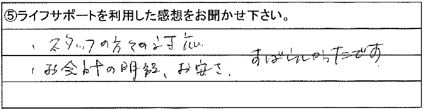 ⑤ライフサポートを利用した感想をお聞かせ下さい。
・スタッフの方々の対応
・お会計の明確、お安さ、すばらしかったです